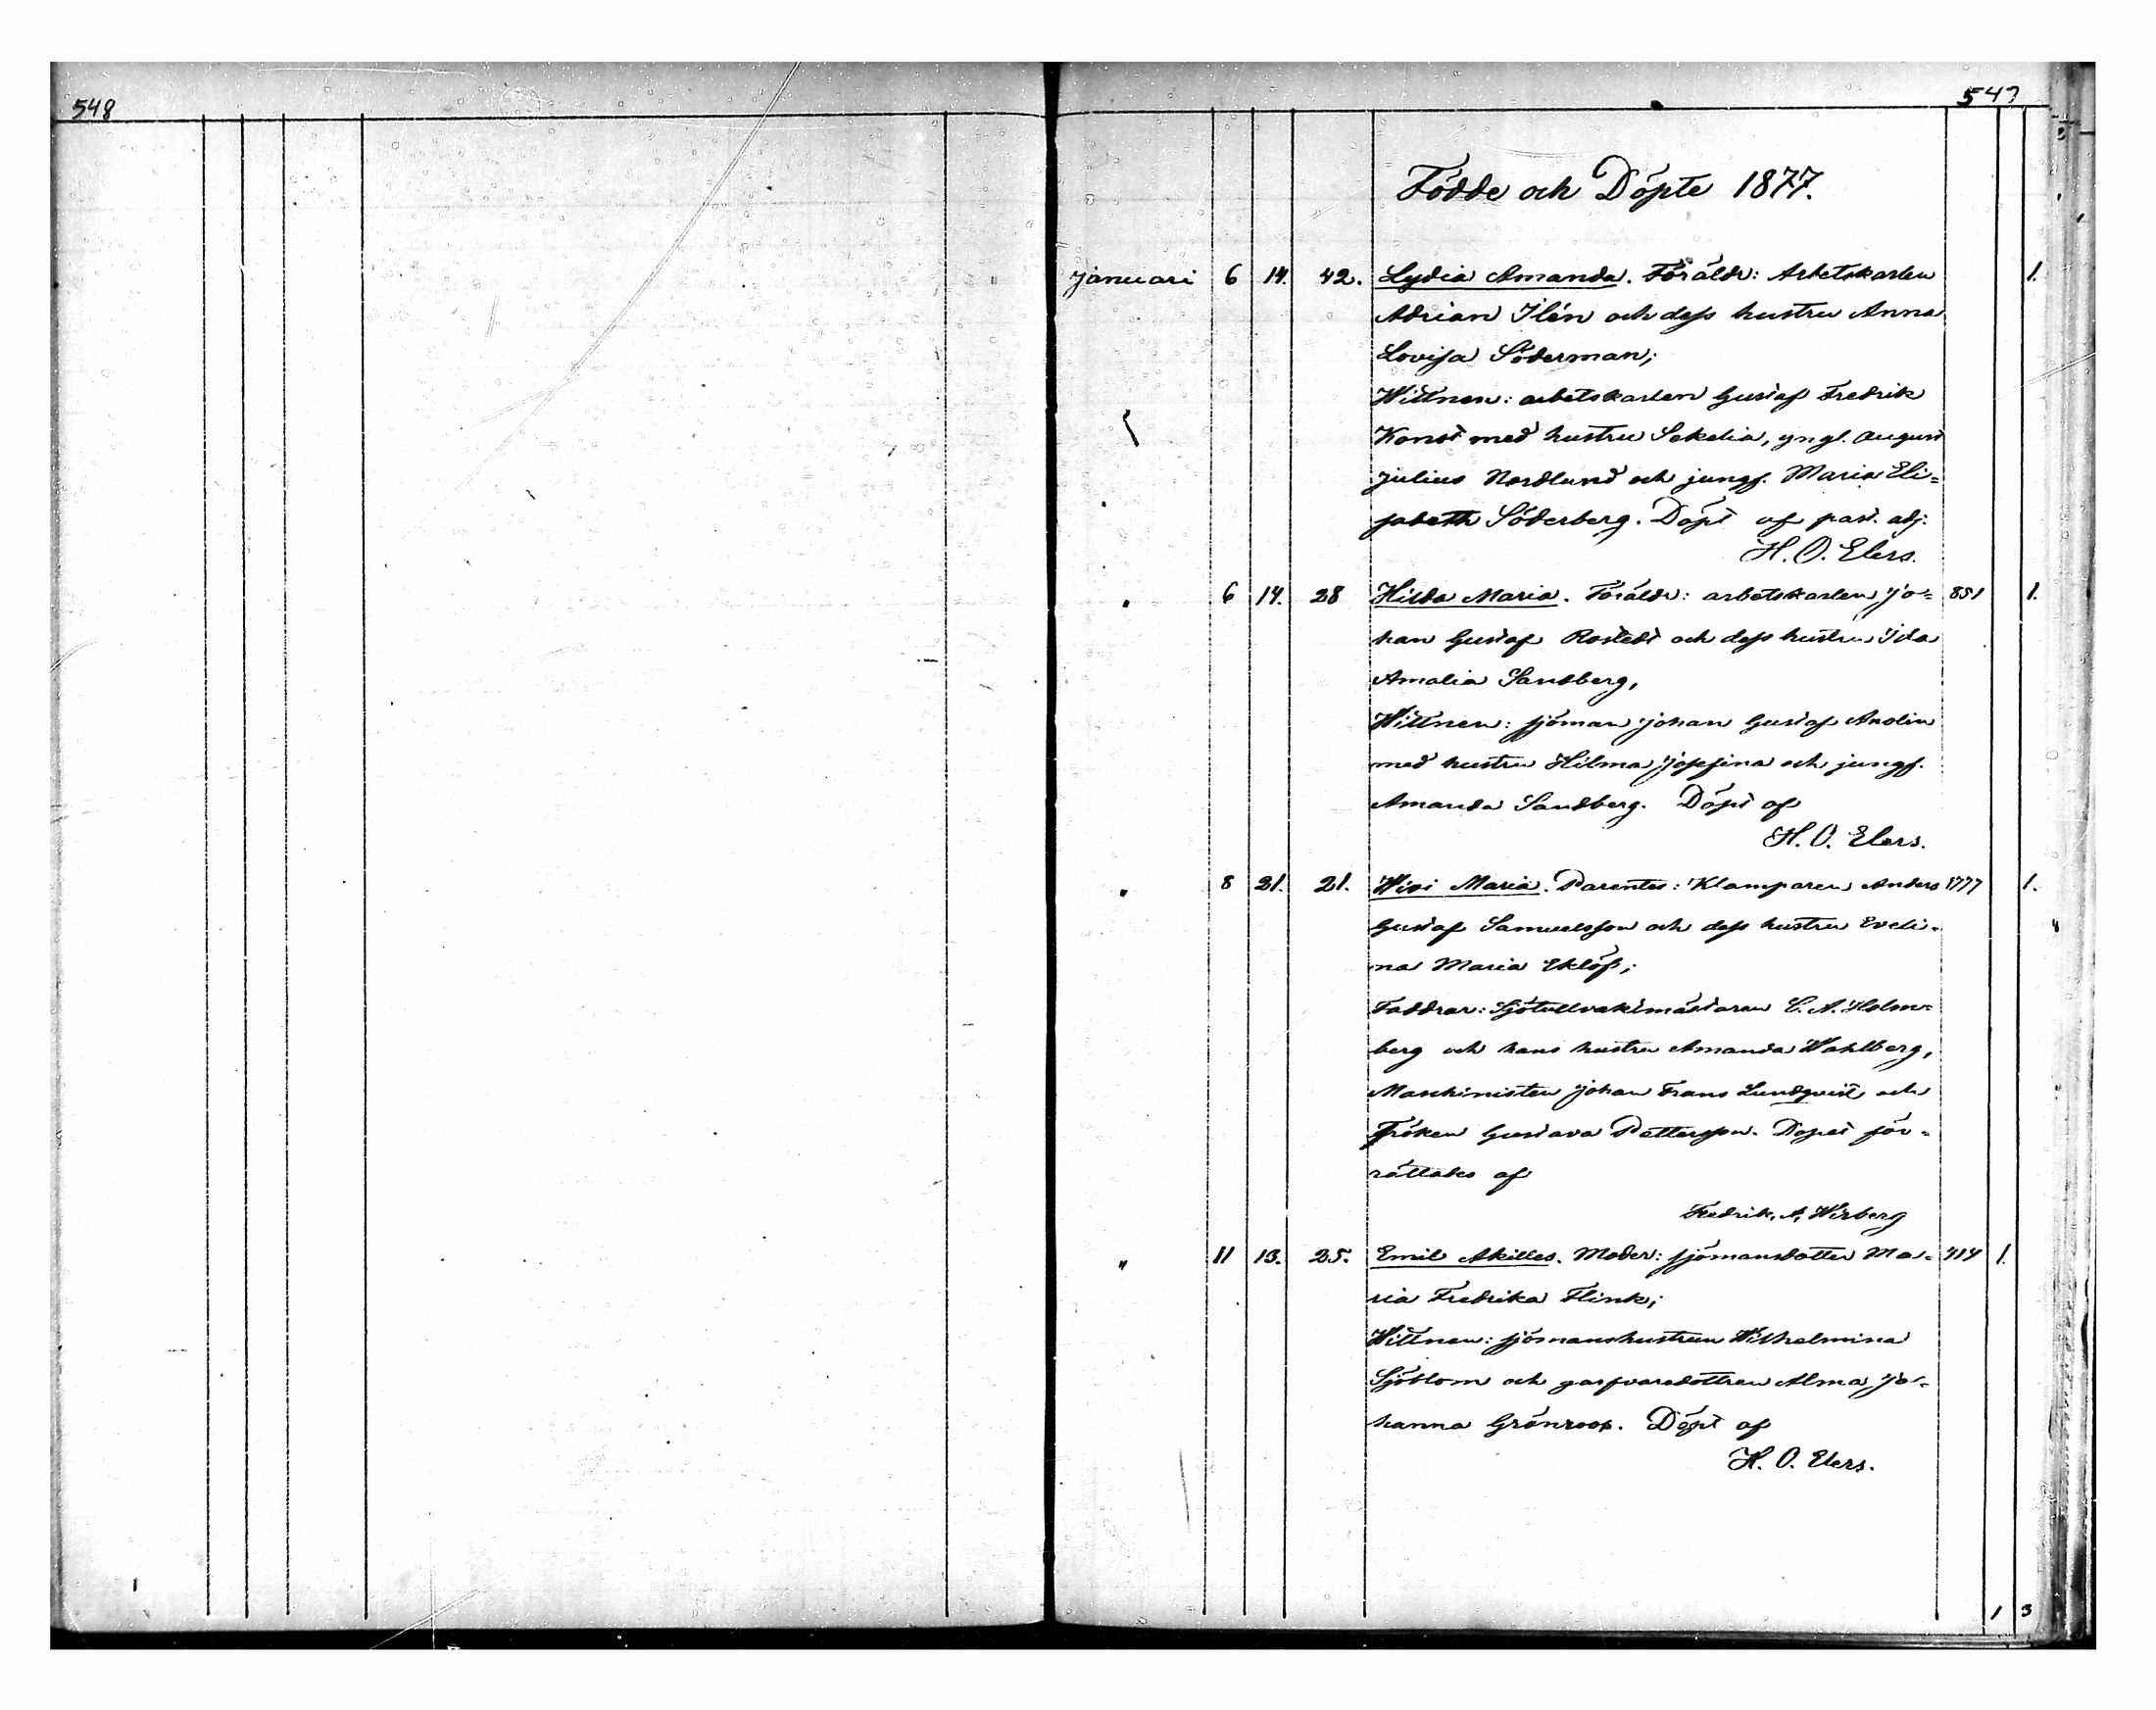 548
547
Födde och Döpte 1877.
Januari 6 14. 42. Lydia Amanda. Föräldr: Arbetskarlen 1.
Adrian Ilén och dess hustru Anna
Lovisa Söderman;
Wittnen: arbetskarlen Gustaf Fredrik
Konst med hustru Sekelia, yngl. August
Julius Nordlund och jungf. Maria Eli=
sabeth Söderberg. Döpt af past. adj.
H. O. Elers.
" 6 14. 28 Hilda Maria. Föräldr: arbetskarlen Jo= 851 1.
han Gustaf Rostedt och dess hustru Ida
Amalia Sandberg,
Wittnen: sjöman Johan Gustaf Anolin
med hustru Hilma Josefina och jungf.
Amanda Sandberg. Döpt af
H. O. Elers.
" 8 21. 21. Wivi Maria. Parentes: Klamparen Anders 1777 1.
Gustaf Samuelsson och dess hustru Eveli=
na Maria Eklöf;
Faddrar: Sjötullvaktmästaren C. A. Holm=
berg och hans hustru Amanda Wahlberg,
Maschinisten Johan Frans Lundqvist och
Fröken Gustava Pettersson. Dopet för=
rättades af
Fredrik. A. Wirberg
" 11 13. 25. Emil Akilles. Moder: sjömansdotter Ma= 414 1.
ria Fredrika Flink;
Wittnen: sjömanshustrun Wilhelmina
Sjöblom och garfvaredottren Alma Jo=
hanna Grönroos. Döpt af
H. O. Elers.
1 3